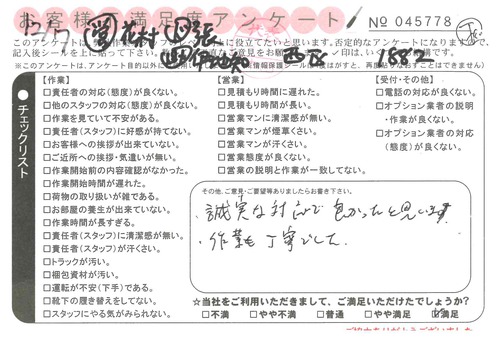 お客様満足度アンケート
№ 045778
このアンケートは、
に役立てたいと思います。否定的なアンケートになりますので、
記入後シールを上に貼って下さい。
直なご意見をお願い
✓印は、いくつでも結構です。
※このアンケートは、アンケート目的以外
情報保護シール
は一度はがすと、再度貼りなおすことはできません)
西区
1882
チェックリスト
【作業】
□責任者の対応(態度)が良くない。
□他のスタッフの対応(態度)が良くない。
□作業を見ていて不安がある。
□責任者(スタッフ)に好感が持てない。
□お客様への挨拶が出来ていない。
□ご近所への挨拶・気遣いが無い。
□作業開始前の内容確認がなかった。
□作業開始時間が遅れた。
□荷物の取り扱いが雑である。
□お部屋の養生が出来ていない。
□作業時間が長すぎる。
□責任者(スタッフ)に清潔感が無い。
□責任者(スタッフ)が汗くさい。
□トラックが汚い。
□梱包資材が汚い。
□運転が不安(下手)である。
□靴下の履き替えをしてない。
□スタッフにやる気がみられない。
【営業】
□見積もり時間に遅れた。
□見積もり時間が長い。
□営業マンに清潔感が無い。
□営業マンが煙草くさい。
□営業マンが汗くさい。
□営業態度が良くない。
□営業の説明と作業が一致してない。
【受付・その他】
□電話の対応が良くない。
□オプション業者の説明
・作業が良くない。
□オプション業者の対応
(態度)が良くない。
その他、ご意見・ご要望等ありましたらお書き下さい。
・誠実な対応で良かったと思います
・作業も丁寧でした。
☆当社をご利用いただきまして、ご満足いただけたでしょうか?
□不満 □やや不満 □普通 □やや満足 ☑満足
ご協力ありがとうございました